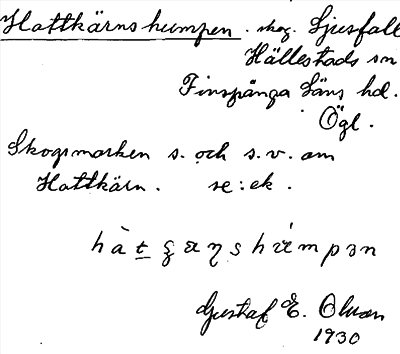 Hattkärnshumpen. skog. Ljusfall
Hällestads sn
Finspånga läns hd.
Ögl.
Skogsmarken s. och s.v. om
Hattkärn. se: ek.
Gustaf E. Olson
1930